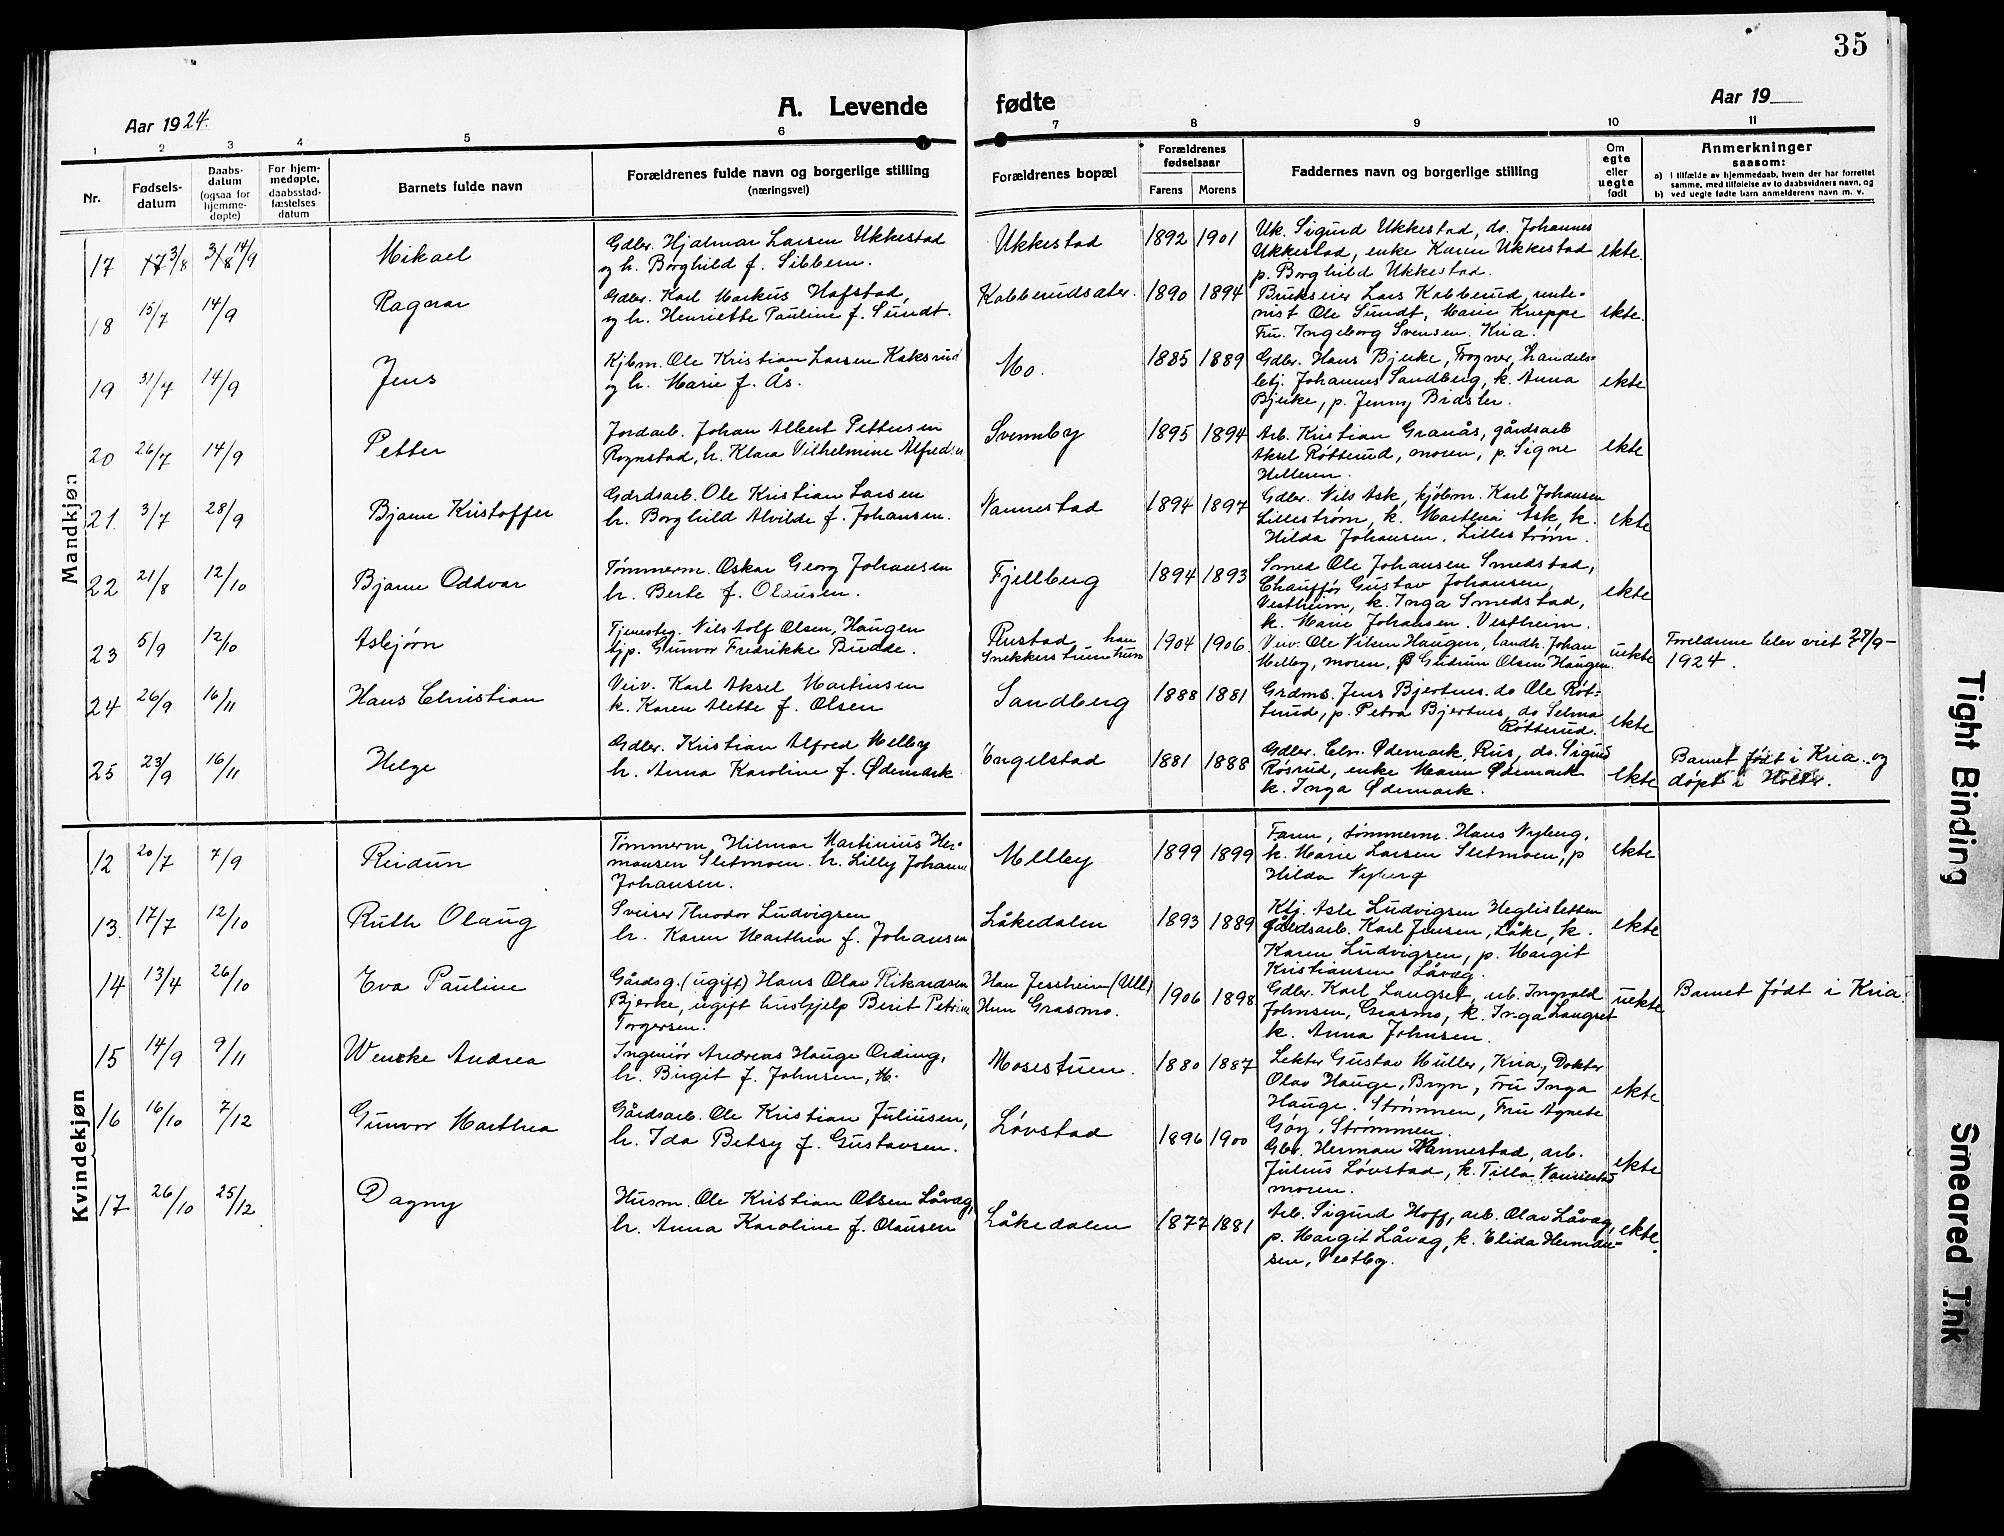 35
Aar 1924.
A. Levende
fødte
Aar 19
1 2 3 4 5 6 7 8 9 10 11
Nr.
Fødsels-
datum
Daabs-
datum
(ogsaa for
hjemme-
døpte)
For hjem-
medøpte,
daabsstad-
fæstelses
datum
Barnets fulde navn
Forældrenes fulde navn og borgerlige stilling
(næringsvei)
Forældrenes bopæl
Forældrenes
fødselsaar
Farens Morens
Faddernes navn og borgerlige stilling
Om
egte
eller
uegte
født
Anmerkninger
saasom:
a) i tilfælde av hjemmedaab, hvem der har forrettet
samme, med tilføielse av to daabsvidners navn, og
b) ved uegte fødte barn anmelderens navn m. v.
Mandkjøn
17 3/8 14/9 Mikael
Gdbr. Hjalmar Larsen Ukkestad
og h. Borghild f. Sibbern.
Ukkestad 1892 1901
Uk. Sigurd Ukkestad, do. Johannes
Ukkestad, enke Karen Ukkestad
p. Borghild Ukkestad.
ekte.
18 15/7 14/9 Ragnar
Gdbr. Karl Markus Hofstad,
og h. Henriette Pauline f. Sundt.
Kobberudsæter. 1890 1894
Brukseier Lars Kobberud, rente-
nist Ole Sundt, Marie Kneppe
Fru. Ingeborg Svensen. Kria.
ekte.
19 31/7 14/9 Jens
Kjbm. Ole Kristian Larsen Kaksrud
og h. Marie f. Ås.
Mo. 1885 1889
Gdbr. Hans Bjerke, Frogner, handels-
betj. Johannes Sandberg, k. Anna
Bjerke, p. Jenny Bidsler.
ekte
20 26/7 14/9 Petter
Jordarb. Johan Albert Pettersen
Rognstad, h. Klara Vilhelmine Alfredsen
Svenneby 1895 1894
Arb. Kristian Granås, gårdsarb
Aksel Røtterud, moren, p. Signe
Helleren.
ekte
21. 3/7 28/9 Bjarne Kristoffer
Gårdsarb. Ole Kristian Larsen
h. Borghild Alvilde f. Johansen.
Nannestad 1894 1897
Gdbr. Nils Ask, kjøbm. Karl Johansen
Lillestrøm, k. Marthea Ask, k.
Hilda Johansen. Lillestrøm.
ekte
22 21/8 12/10 Bjarne Oddvar
Tømmerm. Oskar Georg Johansen
h. Berte f. Olausen.
Fjellberg 1894 1893
Smed Ole Johansen Smedstad,
Chauffør Gustav Johansen,
Vestheim, k. Inga Smedstad,
k. Marie Johansen. Vestheim.
ekte
23 5/9 12/10 Asbjørn
Tjenesteg. Nils Adolf Olsen, Haugen
hjp. Gunvor Fredrikke Budde.
Rustad, han
Snekkerstuen hun 1904 1906.
Veiv. Ole Nilsen Haugen, landh. Johan
Melby, moren, p Gudrun Olsen Haugen.
uekte
Foreldrene blev viet 27/9-
1924.
24 26/9 16/11 Hans Christian
Veiv. Karl Aksel Martinsen
k. Karen Alette f. Olsen
Sandberg 1888 1881
Grdms. Jens Bjertnes. do Ole Røt-
terud, p. Petra Bjertnes, do Selma
Røtterud.
ekte
25 23/9 16/11 Helge
Gdbr. Kristian Alfred Melby
h. Anna Karoline f. Ødemark
Engelstad 1881 1888
Gdbr. Eln. Ødemark, Rus, do. Sigurd
Røsrud, enke Maren Ødemark
k. Inga Ødemark.
ekte
Barnet født i Kria. og
døpt i Holter.
Kvindekjøn
12 20/7 7/9 Reidun
Tømmerm. Hilmar Martinius Her-
mansen Sletmoen. h. Lilly Johanne
Johansen.
Melby 1899 1899
Faren, tømmerm. Hans Nyberg,
k. Marie Larsen Sletmoen, p
Hilda Nyberg
ekte
13. 17/7 12/10 Ruth Olaug
Sveiser Theodor Ludvigsen
h. Karen Marthea f. Johansen
Låkedalen 1893 1889
Ktj. Asle Ludvigsen Heglisletten
gårdsarb. Karl Jensen, Låke, k.
Karen Ludvigsen, p. Margit
Kristiansen Låvåg.
ekte
14 13/4 26/10 Eva Pauline
Gårdsg. (ugift) Hans Olav Rikardsen
Bjerke, ugift hushjelp Berit Petrine
Torgersen.
Han Jessheim (Ull)
Hun Grasmo. 1906 1898
Gdbr. Karl Langset, arb. Ingvald
Johnsen, Grasmo, k. Inga Langset
k. Anna Johnsen.
uekte
Barnet født i Kria.
15 14/9 9/11 Wencke Andrea
Ingeniør Andreas Hauge Ording,
h. Birgit f. Johnsen, M.
Mosestuen. 1880 1887
Lektor Gustav Müller, Kria, Doktor
Olav Hauge, Bryn, Fru Inga
Hauge. Strømmen, Fru Agnete
Gøy, Strømmen.
ekte.
16 16/10 7/12 Gunvor Marthea
Gårdsarb. Ole Kristian Juliusen,
h. Ida Betsy f. Gustavsen.
Løvstad 1896 1900
Gbr. Herman Nannestad, arb.
Julius Løvstad, k. Tilla Nannestad
moren.
ekte
17 26/10 25/12 Dagny
Husm. Ole Kristian Olsen Låvåg,
h. Anna Karoline f. Olausen
Låkedalen 1877 1881
Arb. Sigurd Hoff, arb. Olav Låvåg,
p. Margit Låvåg, k. Elida Herman-
sen, Vestby.
ekte.
Tight Binding
Smeared Ink